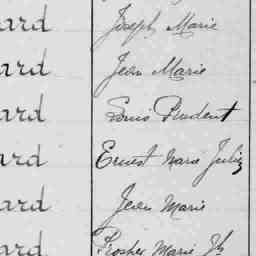 ard Joseph Marie
ard Jean Marie
ard Louis Prudent
ard Ernest Marie Julien
ard Jean Marie
ard Prosper Marie